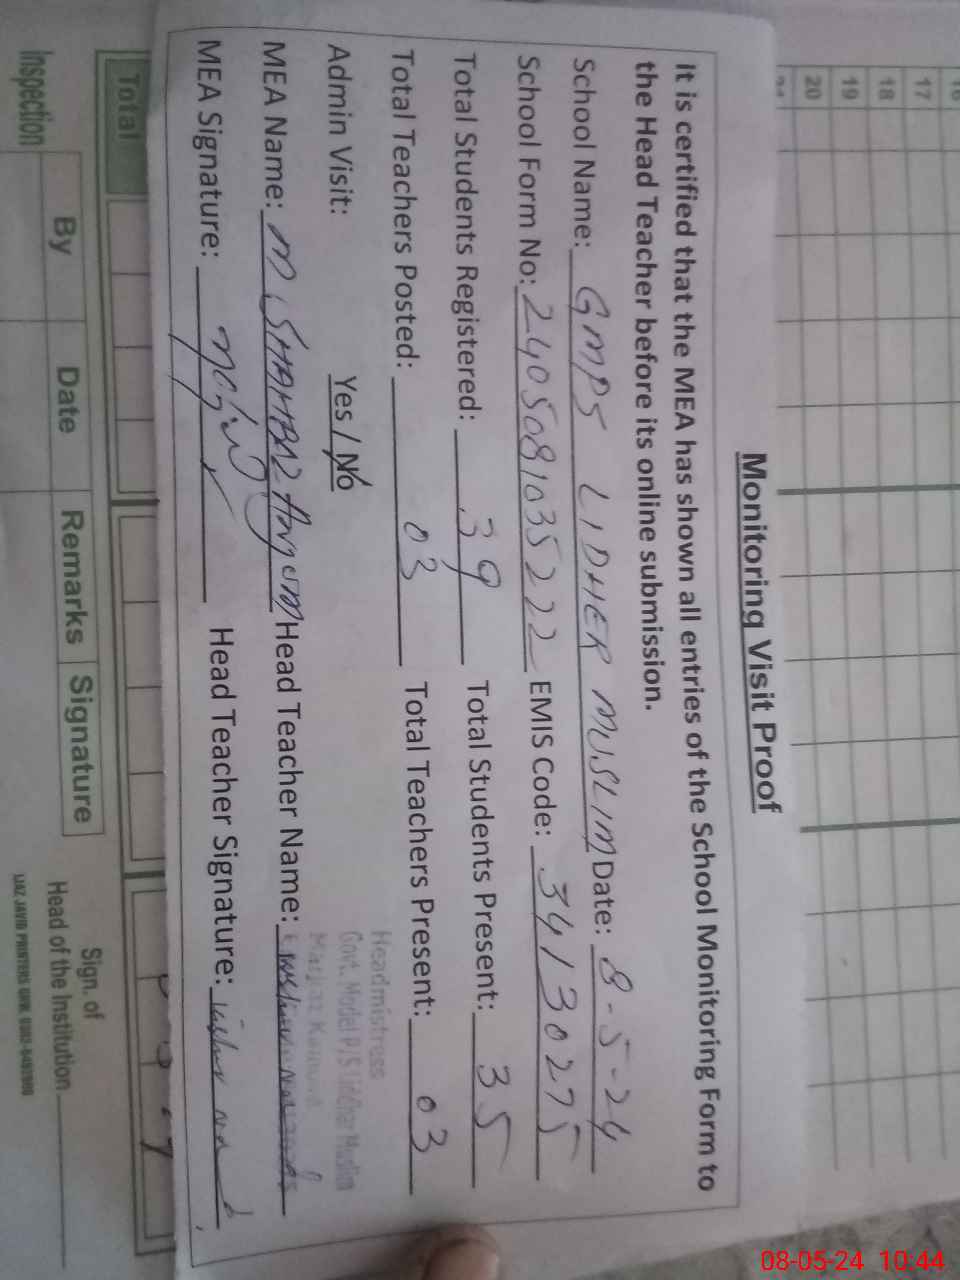 Monitoring Visit Proof
It is certified that the MEA has shown all entries of the School Monitoring Form to
the Head Teacher before its online submission.
School Name: GMPS LIDHER MUSLIM Date: 8-5-24
School Form No: 2405081035222 EMIS Code: 34130275
Total Students Registered: 39 Total Students Present: 35
Total Teachers Posted: 03 Total Teachers Present: 03
Admin Visit: Yes / No
Headmistress
Govt. Model P/S Lidher Muslim
MEA Name: M SHAHBAZ Head Teacher Name:
MEA Signature: Head Teacher Signature:
16
17
18
19
20
21
Total
Inspection
By Date Remarks Signature
Sign. of
Head of the Institution
08-05-24 10:44